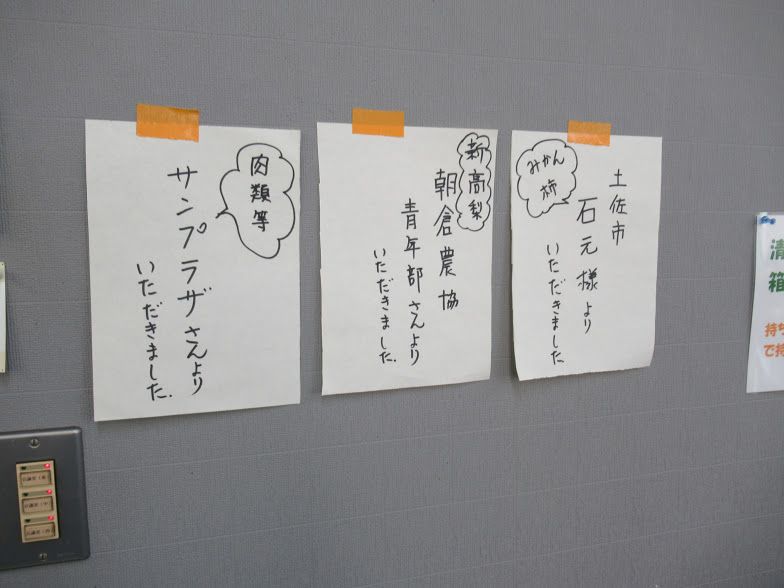 土佐市
石元様より
いただきました
みかん
柿
新高梨
朝倉農協
青年部さんより
いただきました.
肉類等
サンプラザさんより
いただきました.
清
箱
持ち
で持